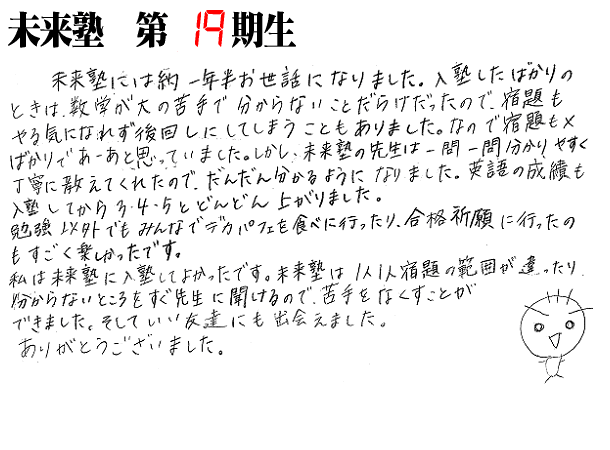 未来塾 第 19 期生
未来塾には約一年半お世話になりました。入塾したばかりの
ときは、数学が大の苦手で分からないことだらけだったので、宿題も
やる気になれず後回しにしてしまうこともありました。なので宿題も×
ばかりであーあと思っていました。しかし、未来塾の先生は一問一問分かりやすく
丁寧に教えてくれたので、だんだん分かるようになりました。英語の成績も
入塾してから3・4・5とどんどん上がりました。
勉強以外でもみんなでデカパフェを食べに行ったり、合格祈願に行ったの
もすごく楽しかったです。
私は未来塾に入塾してよかったです。未来塾は1人1人宿題の範囲が違ったり、
分からないところをすぐ先生に聞けるので、苦手をなくすことが
できました。そしていい友達にも出会えました。
ありがとうございました。